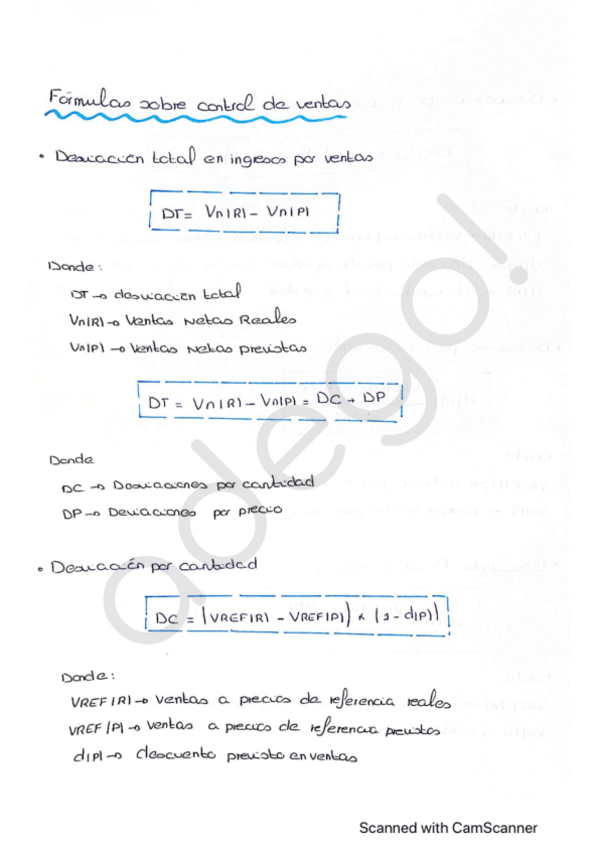 Fórmulas sobre control de ventas
• Desviación total en ingresos por ventas
DT = Vn(R) - Vn(P)
Donde:
DT → desviación total
Vn(R) → Ventas Netas Reales
Vn(P) → Ventas Netas previstas
DT = Vn(R) - Vn(P) = DC + DP
Donde
DC → Desviaciones por cantidad
DP → Deviaciones por precio
• Desviación por cantidad
DC = (VREF(R) - VREF(P)) x (1 - d(P))
Donde:
VREF(R) → Ventas a precios de referencia reales
VREF(P) → Ventas a precios de referencia previstos
d(P) → descuento previsto en ventas
adego!
Scanned with CamScanner